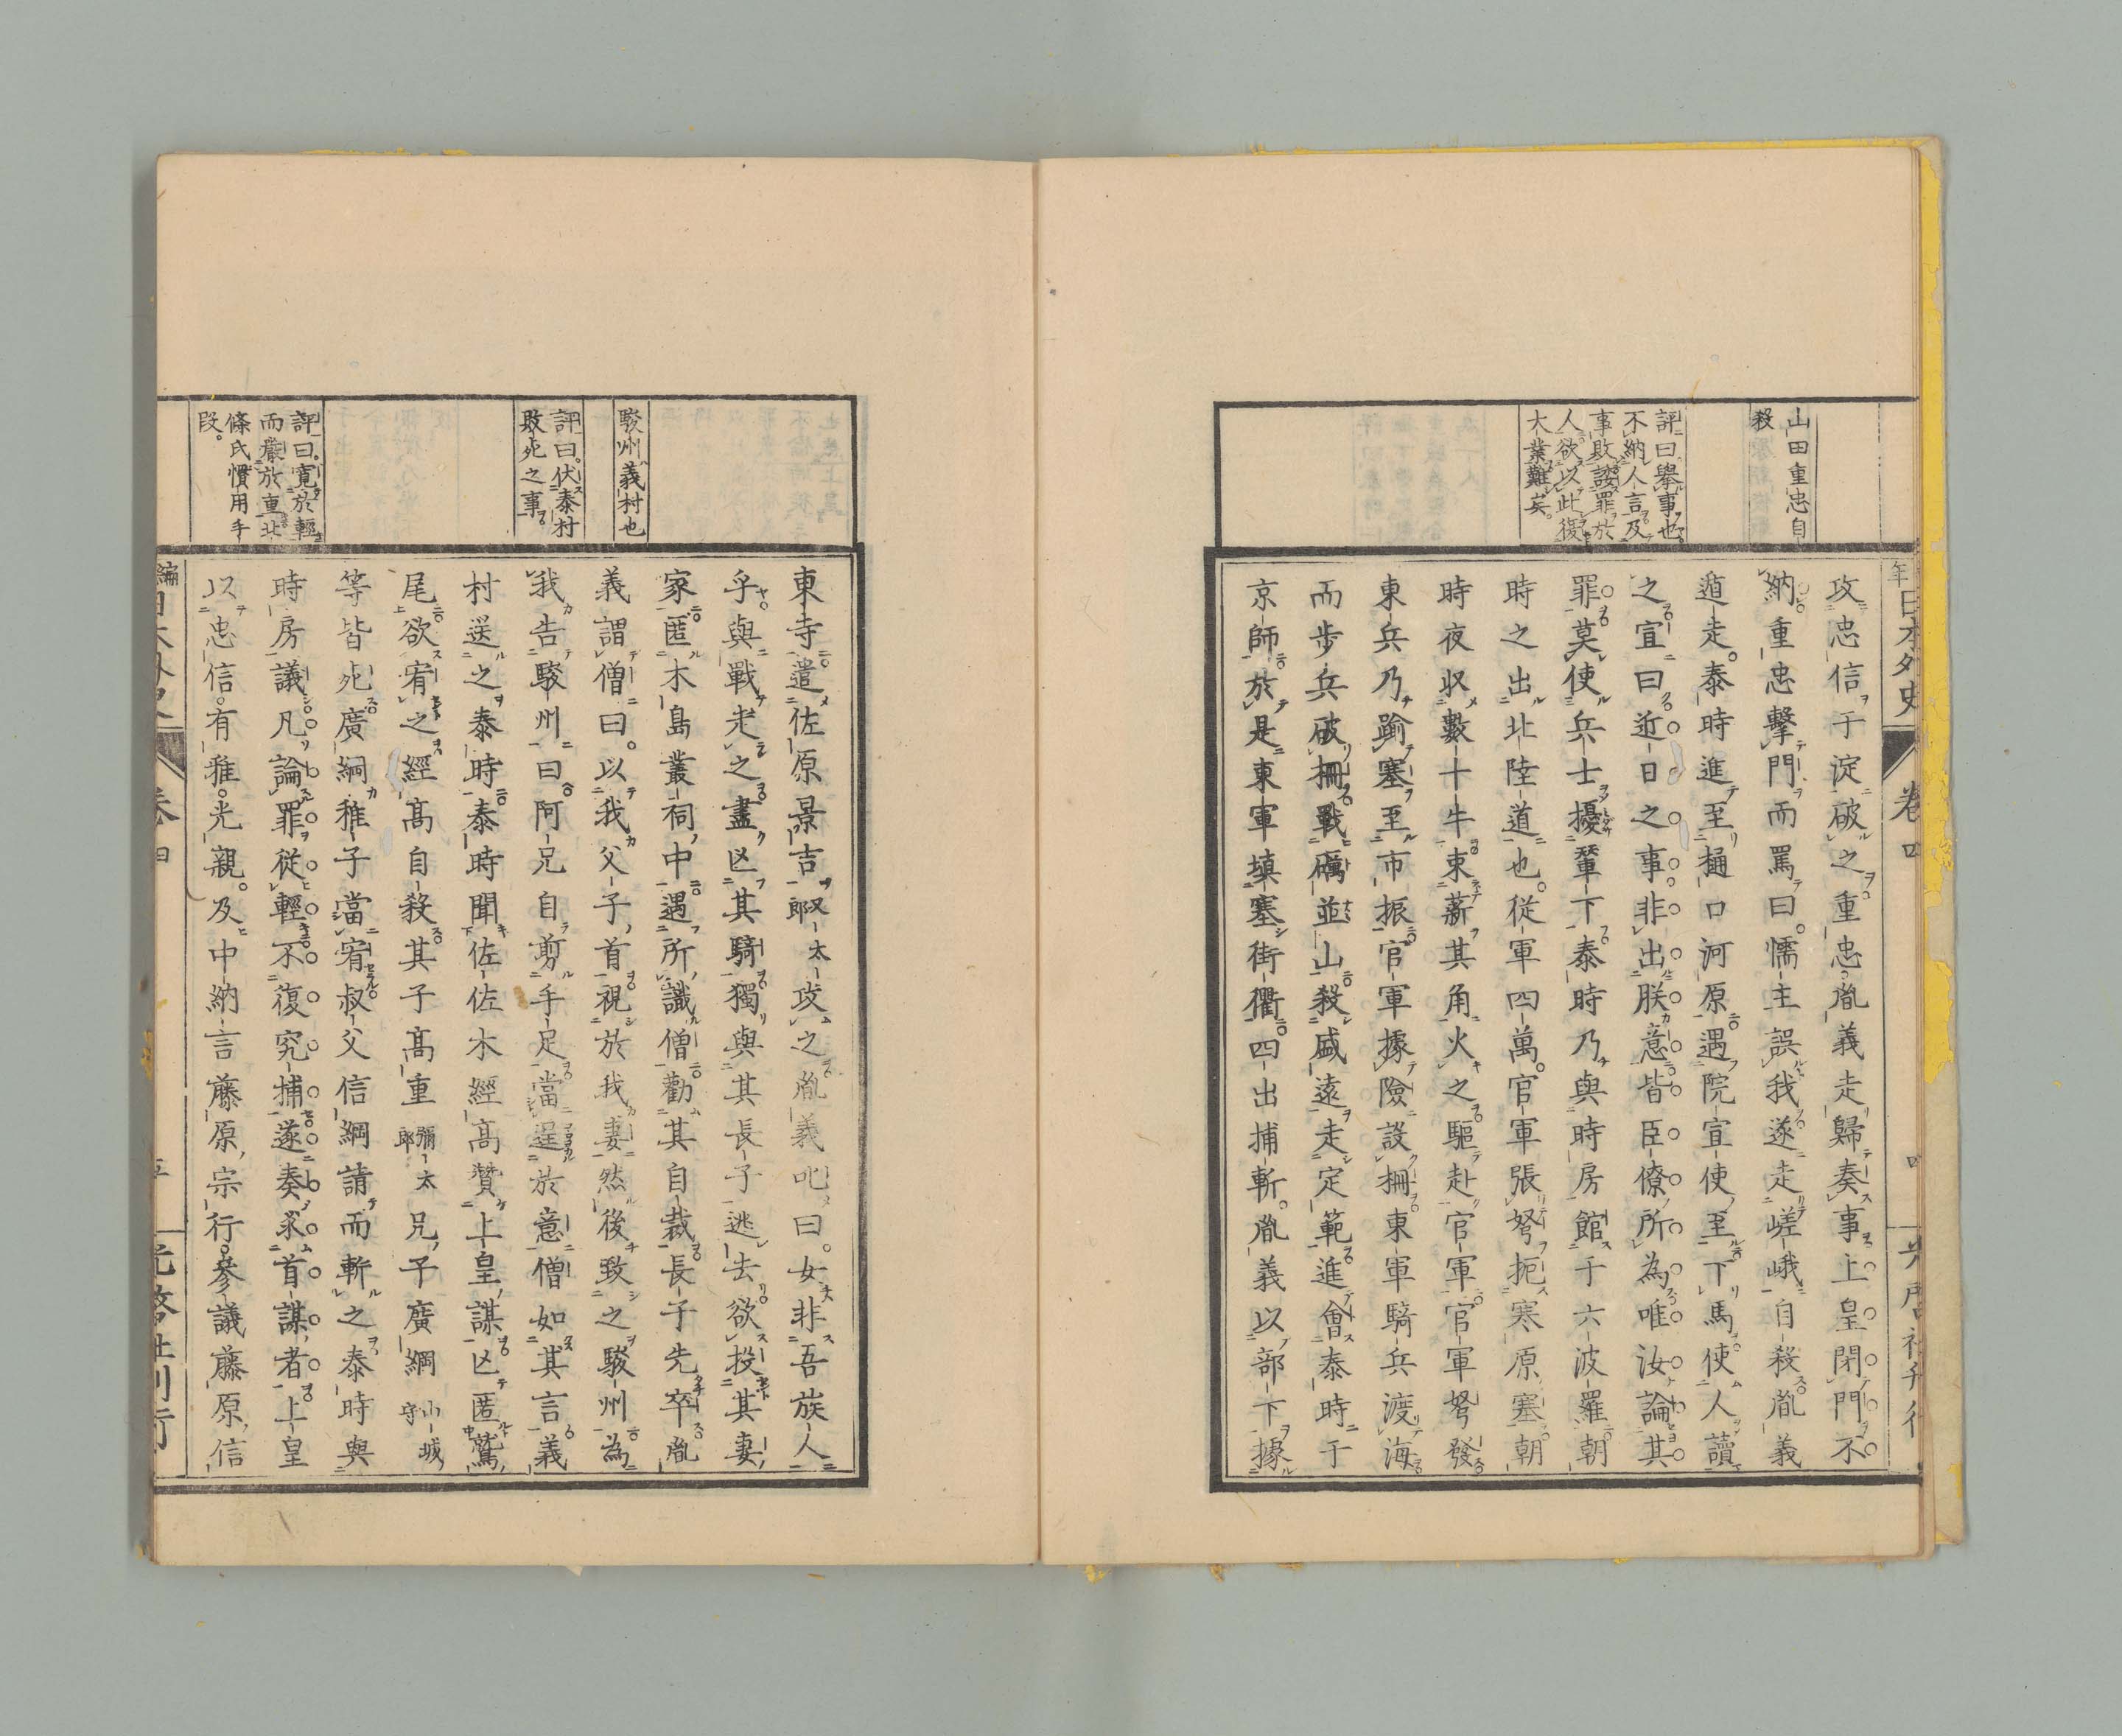 山田重忠自
殺
評曰。擧事也
不納人言。及
事敗諉罪於
人。欲以此復
大業難矣。
攻忠信于淀破之重忠胤義走歸奏事上皇閉門不
納重忠擊門而罵曰。懦主誤我遂走嵯峨自殺胤義
遁走。泰時進至樋口河原遇院宣使至下馬使人讀
之宣曰近日之事非出朕意皆臣僚所為唯汝論其
罪莫使兵士擾輦下泰時乃與時房館于六波羅朝
時之出北陸道也。從軍四萬。官軍張弩扼寒原塞朝
時夜収數十牛束薪其角火之驅赴官軍官軍弩發
東兵乃踰塞至市振官軍據險設柵東軍騎兵渡海
而步兵破柵戰礪並山殺盛遠走定範進會泰時于
京師於是東軍塡塞街衢四出捕斬。胤義以部下據
日本外史
卷四
駿州義村也
評曰。伏泰村
敗死之事
評曰。寬於輕
而嚴於重北
條氏慣用手
段。
東寺遣佐原景吉又太郎攻之胤義叱曰。女非吾族人
乎與戰走之盡亾其騎獨與其長子逃去欲投其妻
家匿木島叢祠中遇所識僧勸其自裁長子先卒胤
義謂僧曰。以我父子首視於我妻然後致之駿州為
我告駿州曰阿兄自剪手足當逞於意僧如其言義
村送之泰時泰時聞佐佐木經高贊上皇謀亾匿鷲
尾欲宥之經高自殺其子高重彌太郎兄子廣綱山城守
等皆死廣綱稚子當宥叔父信綱請而斬之泰時與
時房議凡論罪從輕不復究捕遂奏求首謀者上皇
以忠信。有雅。光親。及中納言藤原宗行。參議藤原信
卷四